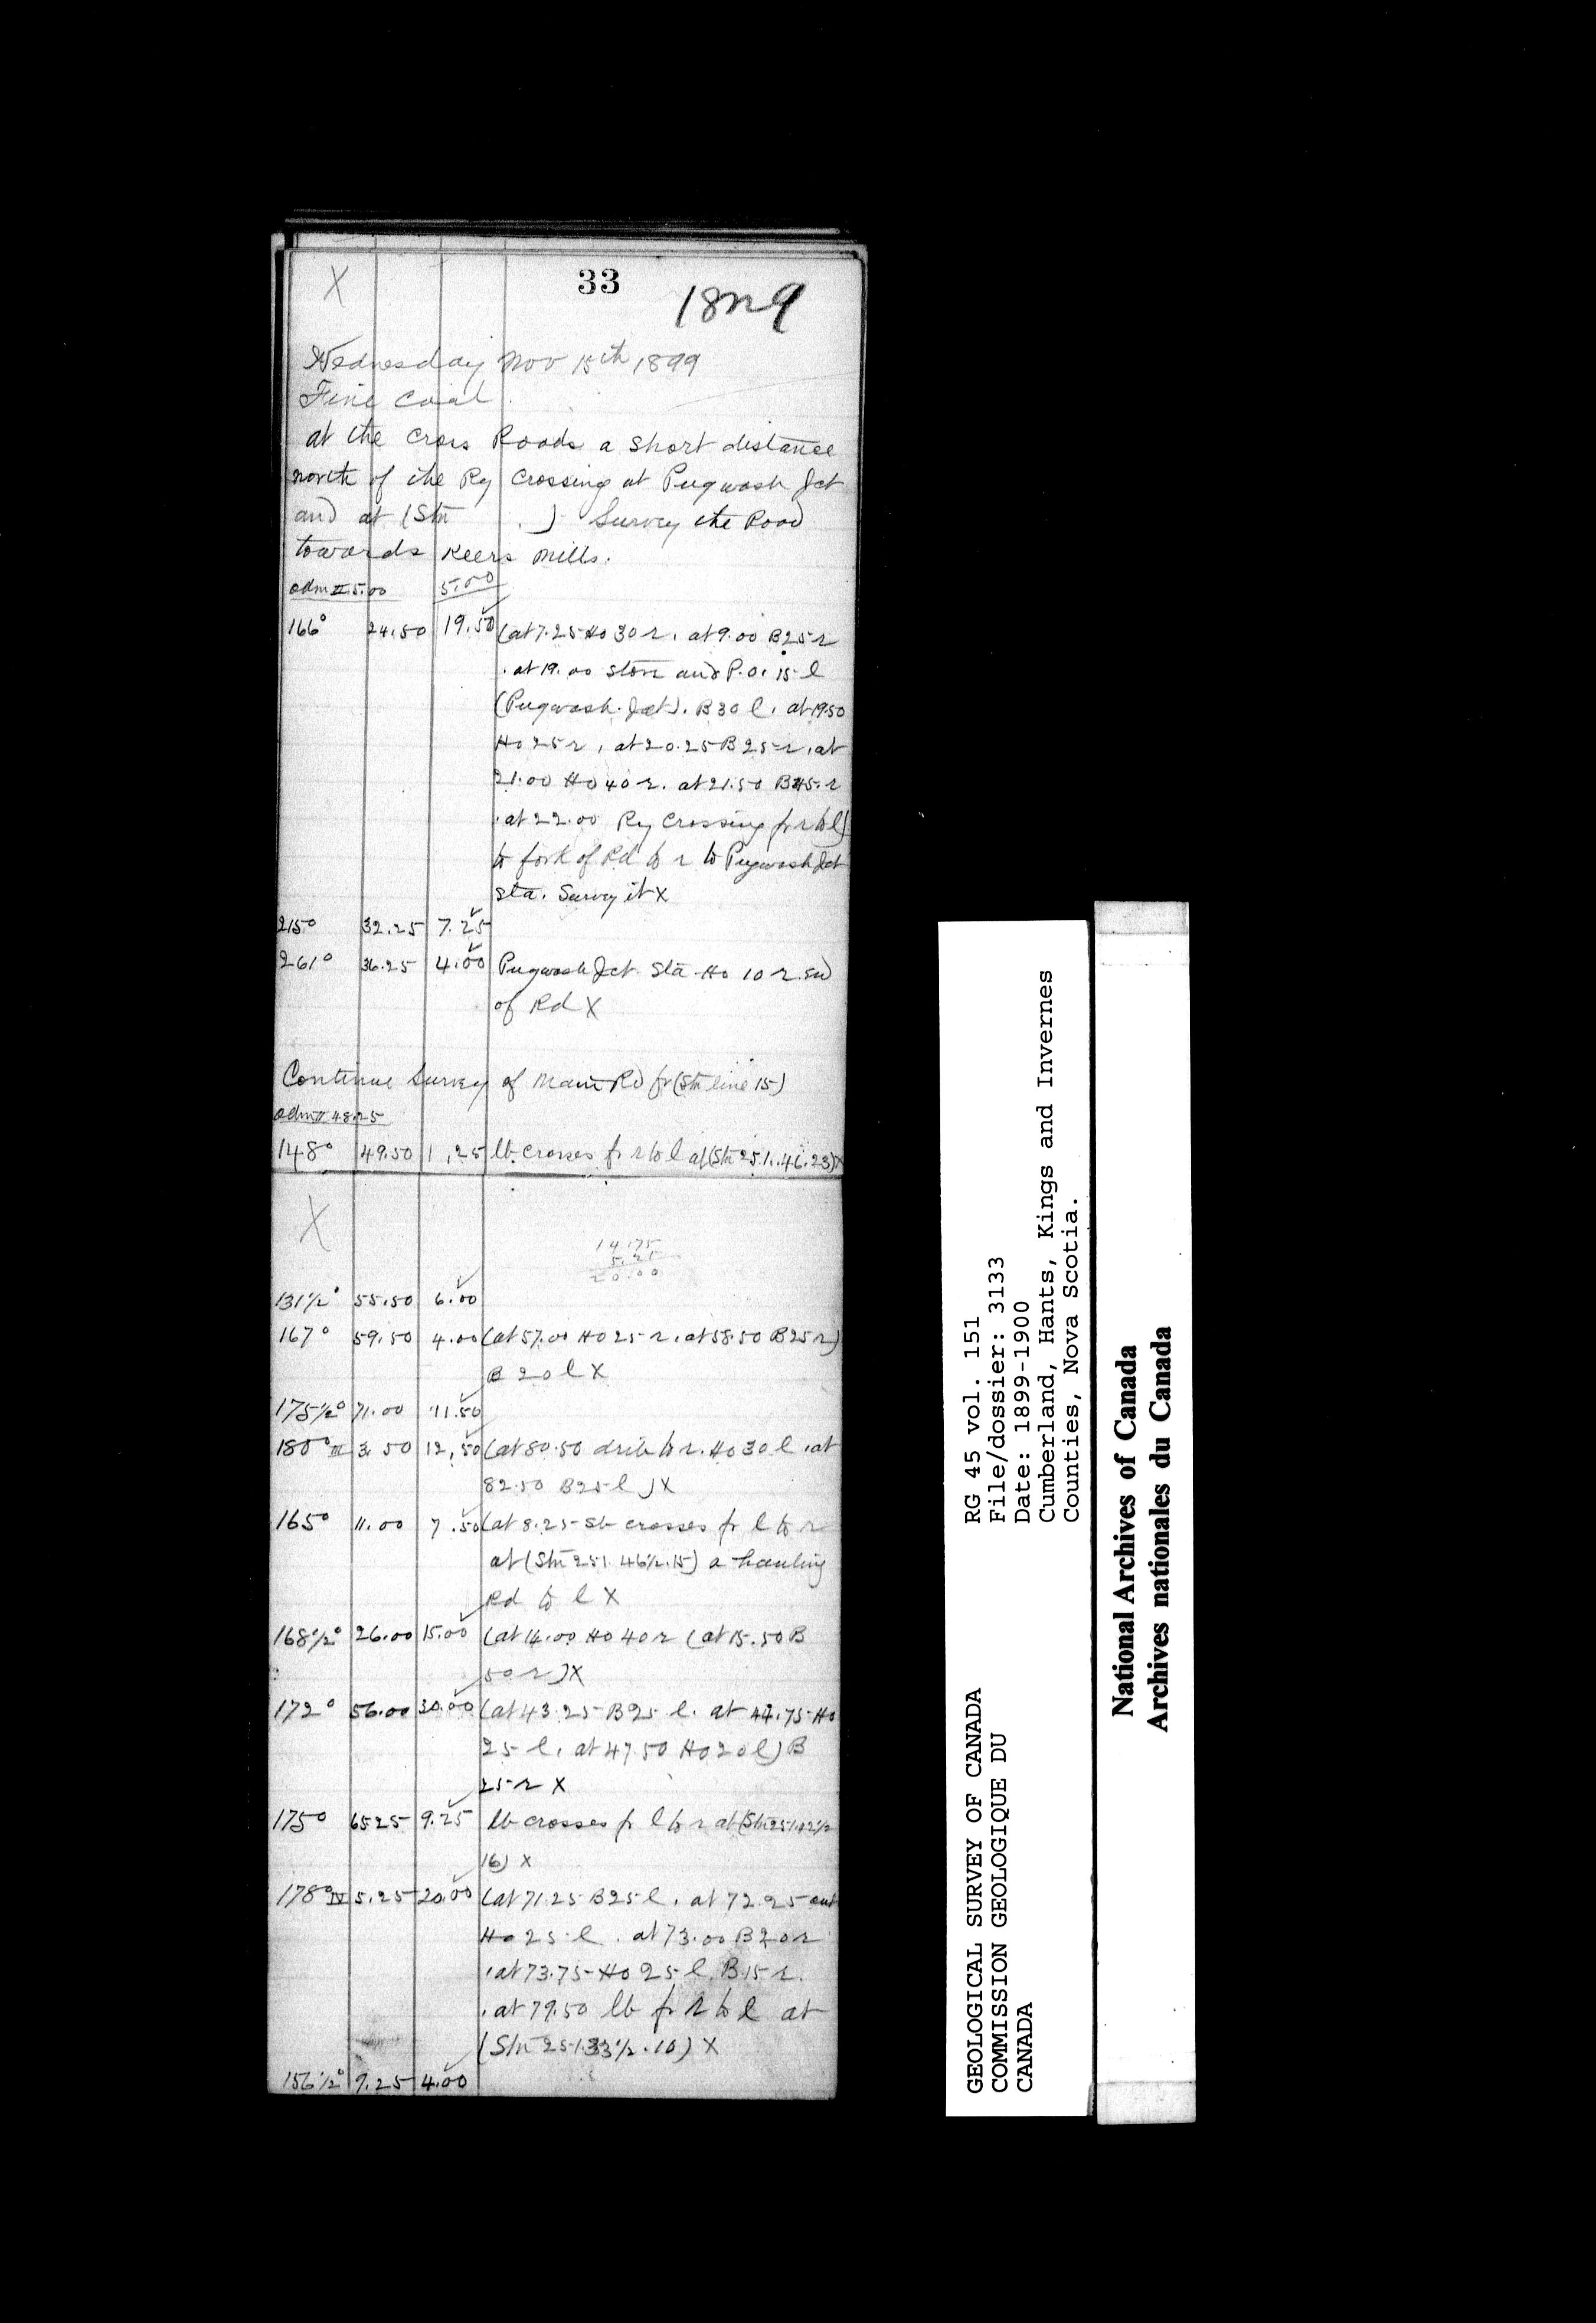 X
33
18n9
Wednesday Nov 15th 1899
Fine Cool
at the Cross Roads a short distance
north of the Ry Crossing at Pugwash Jct
and at (Stn . ) Survey the Road
towards Keers Mills.
odm II 5.00 5.00
166° 24.50 19.50 (at 7.25 Ho 30 r. at 9.00 B 25 r
. at 19.00 store and P.O. 15 l
(Pugwash Jct). B 30 l. at 19.50
Ho 25 r, at 20.25 B 25 r, at
21.00 Ho 40 r. at 21.50 B 45 r
. at 22.00 Ry Crossing fr r to l)
to fork of Rd to r to Pugwash Jct
Sta. Survey it X
215° 32.25 7.25
261° 36.25 4.00 Pugwash Jct Sta Ho 10 r. End
of Rd X
Continue Survey of Main Rd fr (Stn line 15)
odm II 48.25
148° 49.50 1.25 lb crosses fr r to l at (Stn 251.46.23) X
X
14.75
5.25
20.00
131½° 55.50 6.00
167° 59.50 4.00 (at 57.00 Ho 25 r. at 58.50 B 25 r)
B 20 l X
175½° 71.00 11.50
180° III 3.50 12.50 (at 80.50 drive to r. Ho 30 l. at
82.50 B 25 l) X
165° 11.00 7.50 (at 8.25 Sb crosses fr l to r
at (Stn 251.46½.15) a hauling
Rd to l X
168½° 26.00 15.00 (at 14.00 Ho 40 r (at 15.50 B
50 r) X
172° 56.00 30.00 (at 43.25 B 25 l. at 44.75 Ho
25 l, at 47.50 Ho 20 l) B
25 r X
175° 65.25 9.25 lb crosses fr l to r at (Stn 251.42½
16) X
178° IV 5.25 20.00 (at 71.25 B 25 l. at 72.25
Ho 25 l. at 73.00 B 20 r
. at 73.75 Ho 25 l. B 15 r.
. at 79.50 lb fr r to l at
(Stn 251.33½.10) X
156½° 9.25 4.00
GEOLOGICAL SURVEY OF CANADA
COMMISSION GEOLOGIQUE DU
CANADA
RG 45 vol. 151
File/dossier: 3133
Date: 1899-1900
Cumberland, Hants, Kings and Invernes
Counties, Nova Scotia.
National Archives of Canada
Archives nationales du Canada